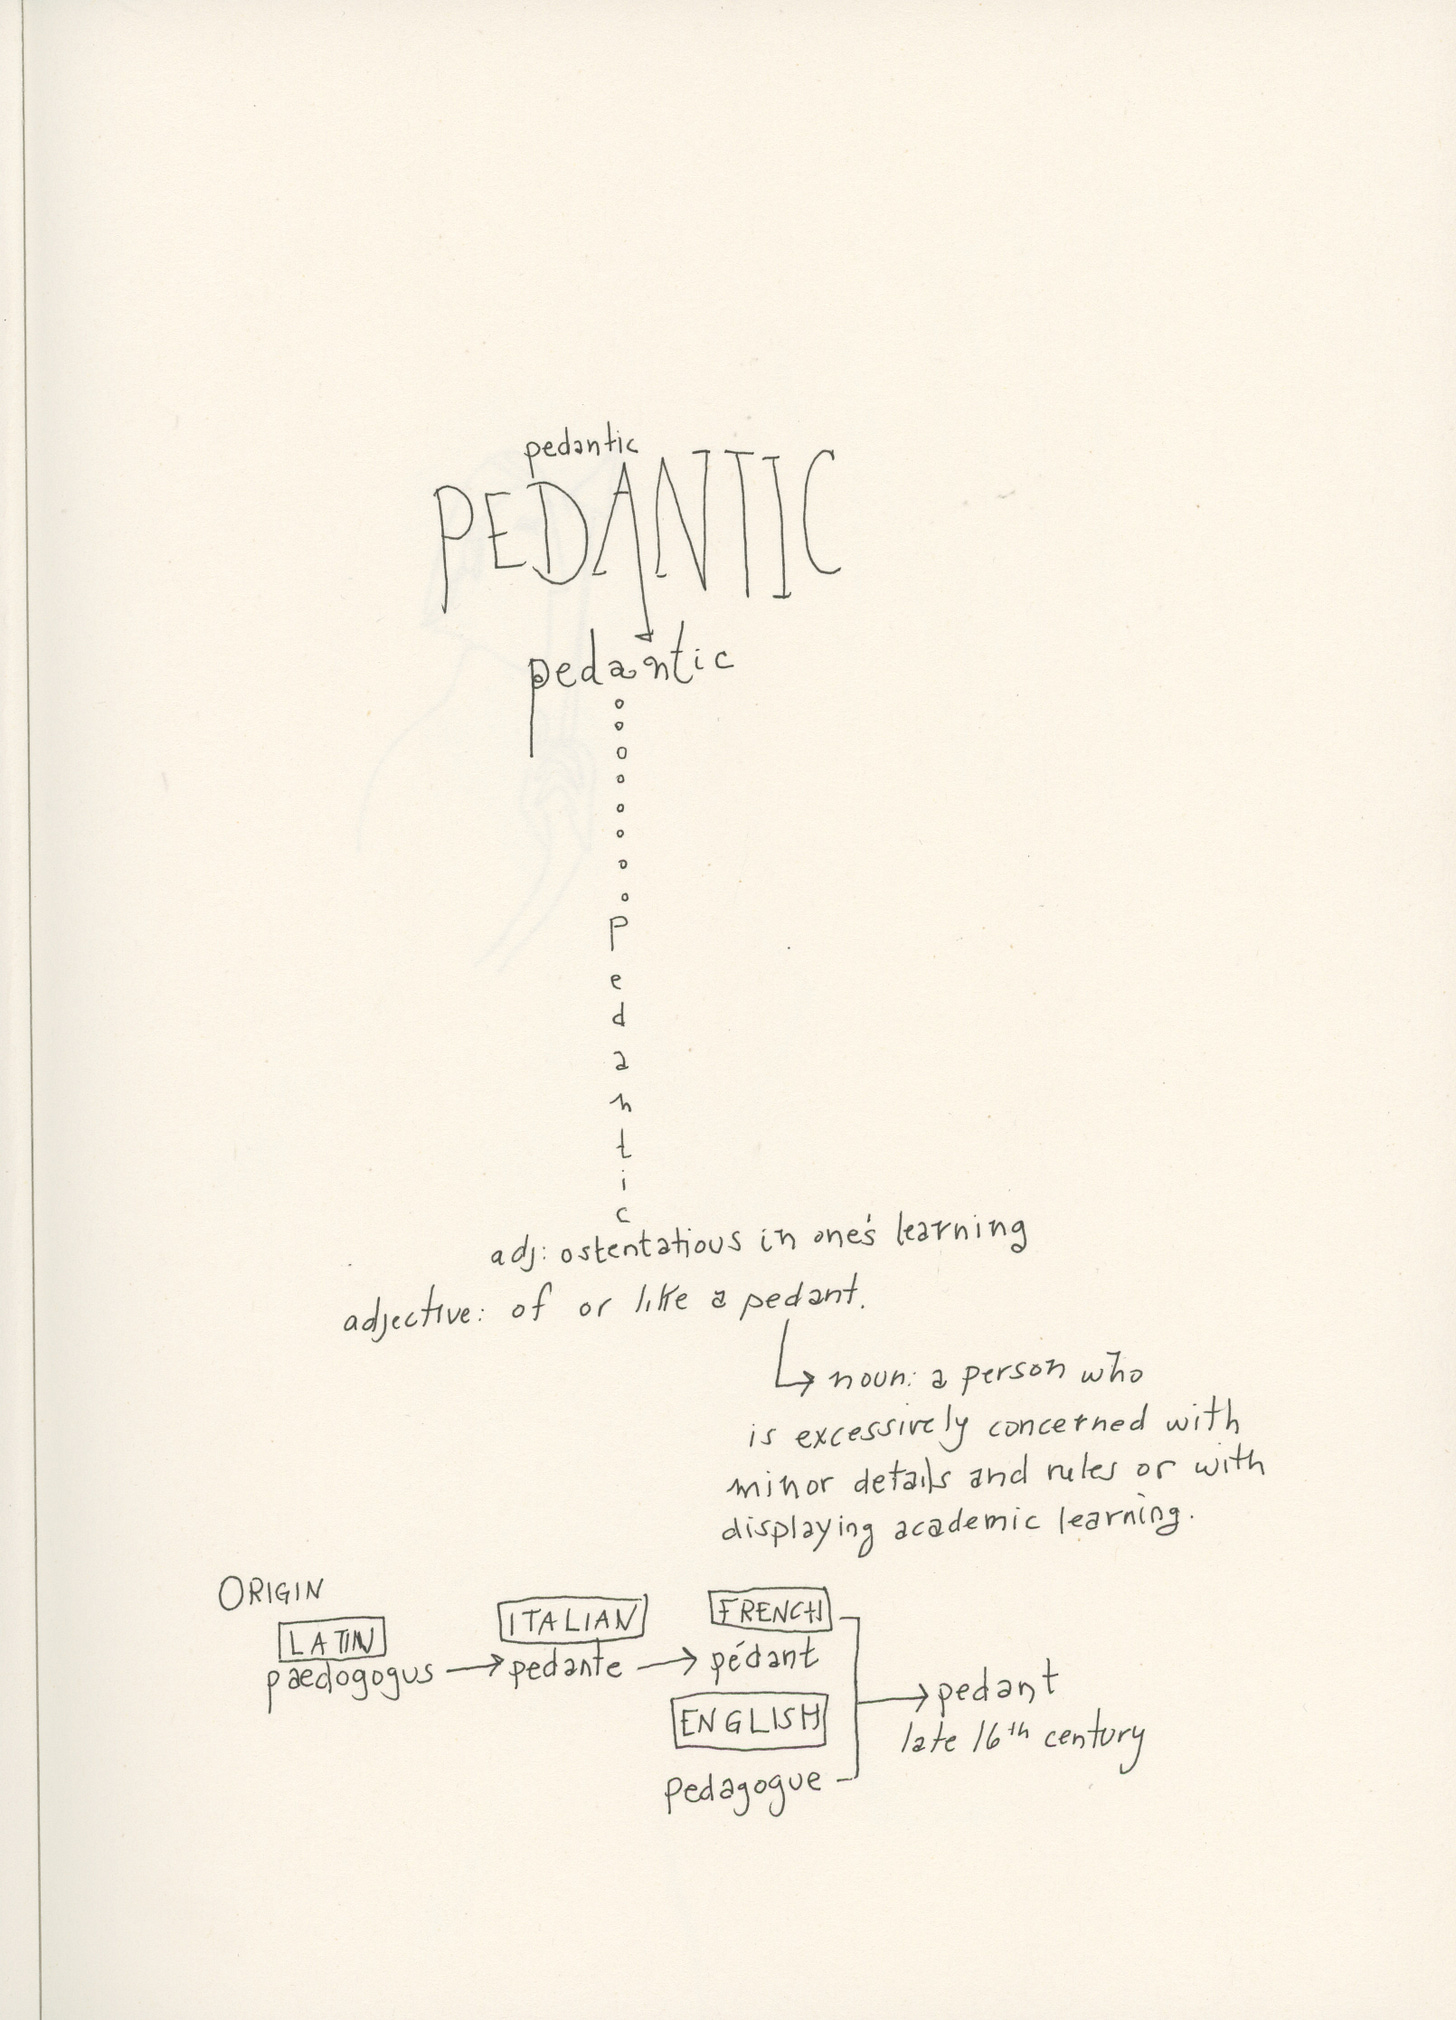 pedantic
PEDANTIC
pedantic
p
e
d
a
n
t
i
c
adj: ostentatious in one's learning
adjective: of or like a pedant.
noun: a person who
is excessively concerned with
minor details and rules or with
displaying academic learning.
ORIGIN
LATIN
paedogogus → pedante → pédant
ITALIAN
FRENCH
ENGLISH
pedagogue
→ pedant
late 16th century